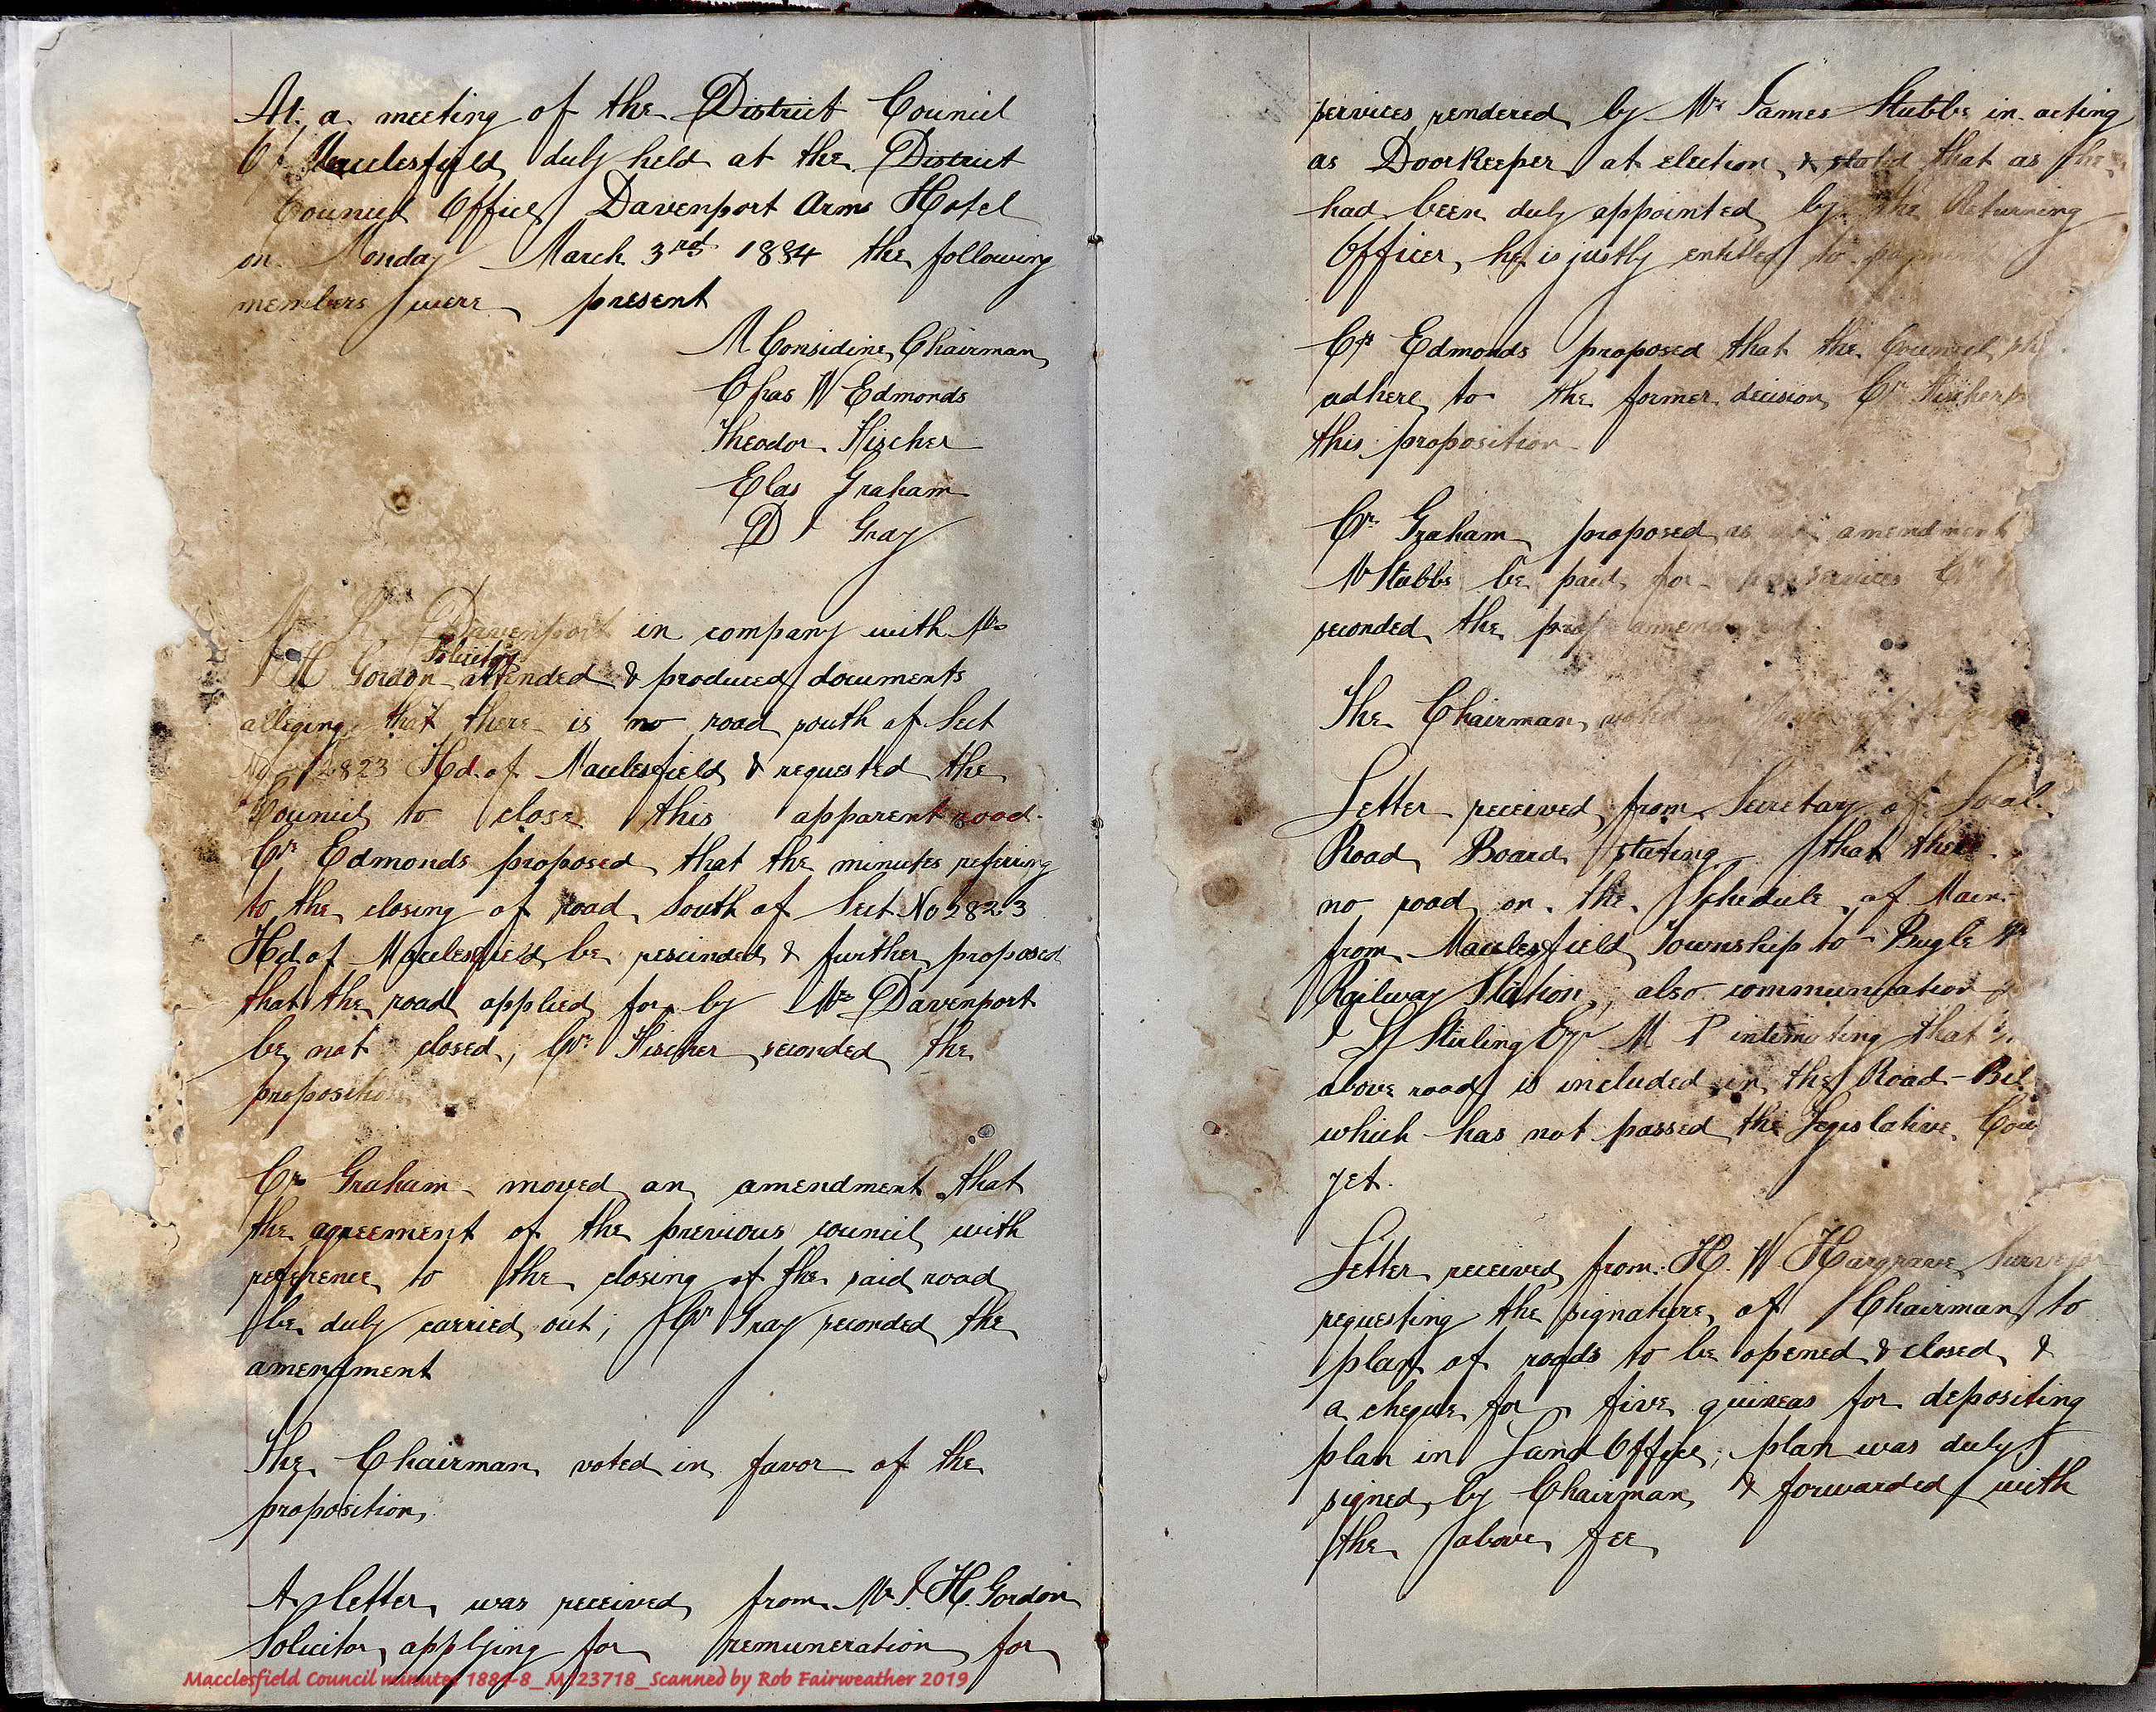 At a meeting of the District Council
Of Macclesfield duly held at the District
Council Office Davenport Arms Hotel
on Monday March 3rd 1884 the following
members were present
M Considine, Chairman
Chas W Edmonds
Theodor Fischer
Elas Graham
D I Gray
Davenport in company with Mr
J H Gordon attended & produced documents
Solicitor
alleging that there is no road south of Sect
No 2823 Hd. of Macclesfield & requested the
Council to close this apparent road.
Cr Edmonds proposed that the minutes refering
to the closing of road South of Sect No 2823
Hd of Macclesfield be rescinded & further proposed
that the road applied for by Mr Davenport
be not closed, Cr Fischer seconded the
proposition
Cr Graham moved an amendment that
the agreement of the previous council with
reference to the closing of the said road
be duly carried out; Cr Gray seconded the
amendment
The Chairman voted in favor of the
proposition,
A letter was received from Mr J. H. Gordon
Solicitor applying for remuneration for
services rendered by Mr James Stubbs in acting
as Doorkeeper at election, & stated that as he
had been duly appointed by the Returning
Officer, he is justly entitled to payment
Cr Edmonds proposed that the Council
adhere to the former decision, Cr Fischer
this proposition
Cr Graham proposed as an amendment
Mr Stubbs be paid for his services Cr
seconded the amendment
The Chairman voted
Letter received from Secretary of Local
Road Board stating that there
no road on the Schedule of Main
from Macclesfield Township to Bugle
Railway Station, also communication
J L Stirling Esq M P intimating that
above road is included in the Road-Bil
which has not passed the Legislative Cou
yet.
Letter received from H. W Hargrave Surveyor
requesting the signature of Chairman to
plan of roads to be opened & closed, &
a cheque for five guineas for depositing
plan in Land Office; plan was duly
signed by Chairman & forwarded with
the above fee
Macclesfield Council minutes 1884-8_M123718_Scanned by Rob Fairweather 2019